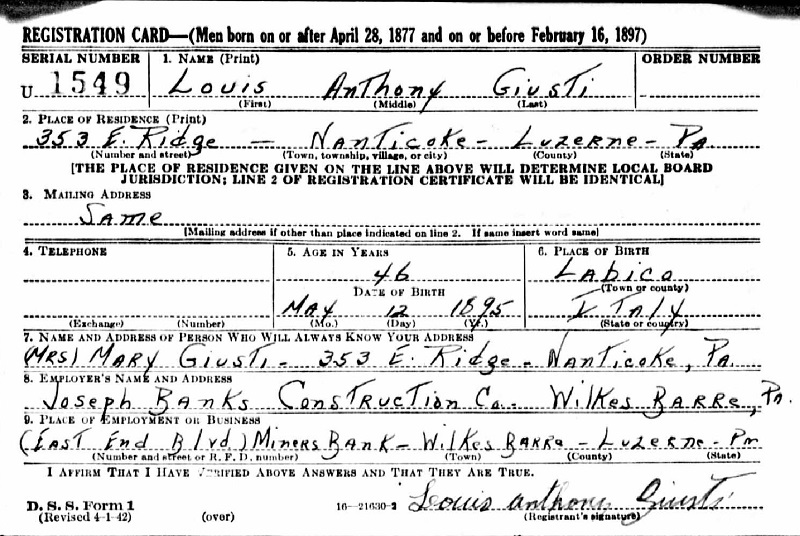 REGISTRATION CARD—(Men born on or after April 28, 1877 and on or before February 16, 1897)
SERIAL NUMBER 1. NAME (Print) ORDER NUMBER
U 1549 Louis Anthony Giusti
(First) (Middle) (Last)
2. PLACE OF RESIDENCE (Print)
353 E. Ridge — Nanticoke - Luzerne - Pa
(Number and street) (Town, township, village, or city) (County) (State)
[THE PLACE OF RESIDENCE GIVEN ON THE LINE ABOVE WILL DETERMINE LOCAL BOARD
JURISDICTION; LINE 2 OF REGISTRATION CERTIFICATE WILL BE IDENTICAL]
3. MAILING ADDRESS
Same
[Mailing address if other than place indicated on line 2. If same insert word same]
4. TELEPHONE 5. AGE IN YEARS 6. PLACE OF BIRTH
46 Labico
DATE OF BIRTH (Town or county)
May 12 1895 Italy
(Exchange) (Number) (Mo.) (Day) (Yr.) (State or country)
7. NAME AND ADDRESS OF PERSON WHO WILL ALWAYS KNOW YOUR ADDRESS
(Mrs) Mary Giusti - 353 E. Ridge - Nanticoke, Pa.
8. EMPLOYER'S NAME AND ADDRESS
Joseph Banks Construction Co - Wilkes Barre, Pa.
9. PLACE OF EMPLOYMENT OR BUSINESS
(East End Blvd) Miners Bank - Wilkes Barre - Luzerne - Pa
(Number and street or R. F. D. number) (Town) (County) (State)
I AFFIRM THAT I HAVE VERIFIED ABOVE ANSWERS AND THAT THEY ARE TRUE.
D. S. S. Form 1
(Revised 4-1-42) (over) 16—21630-2 Louis Anthony Giusti
(Registrant's signature)